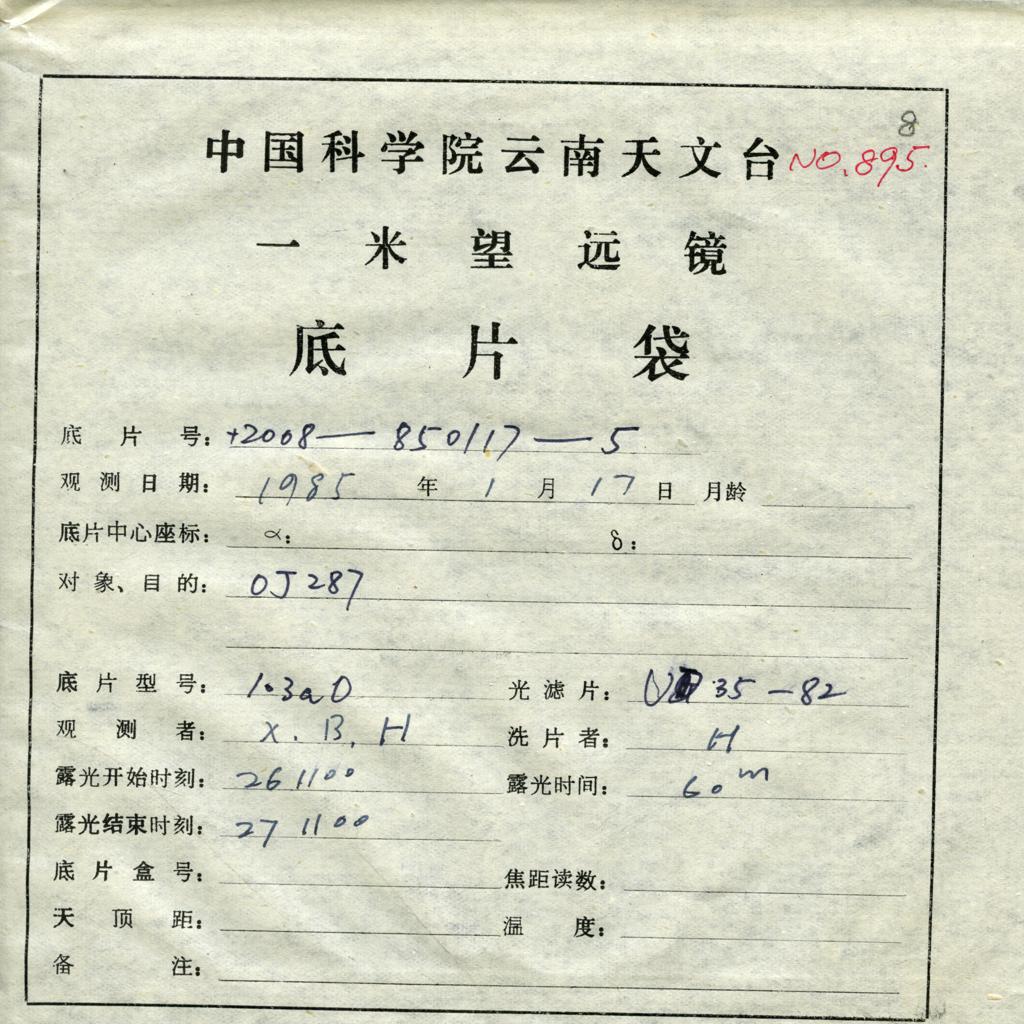 8
中国科学院云南天文台 NO.895.
一米望远镜
底片袋
底片号: +2008—850117—5
观测日期: 1985 年 1 月 17 日 月龄
底片中心座标: α: δ:
对象、目的: OJ 287
底片型号: 1.3aO 光滤片: 35-82
观测者: X. B. H 洗片者: H
露光开始时刻: 261100 露光时间: 60m
露光结束时刻: 271100
底片盒号: 焦距读数:
天顶距: 温度:
备注: